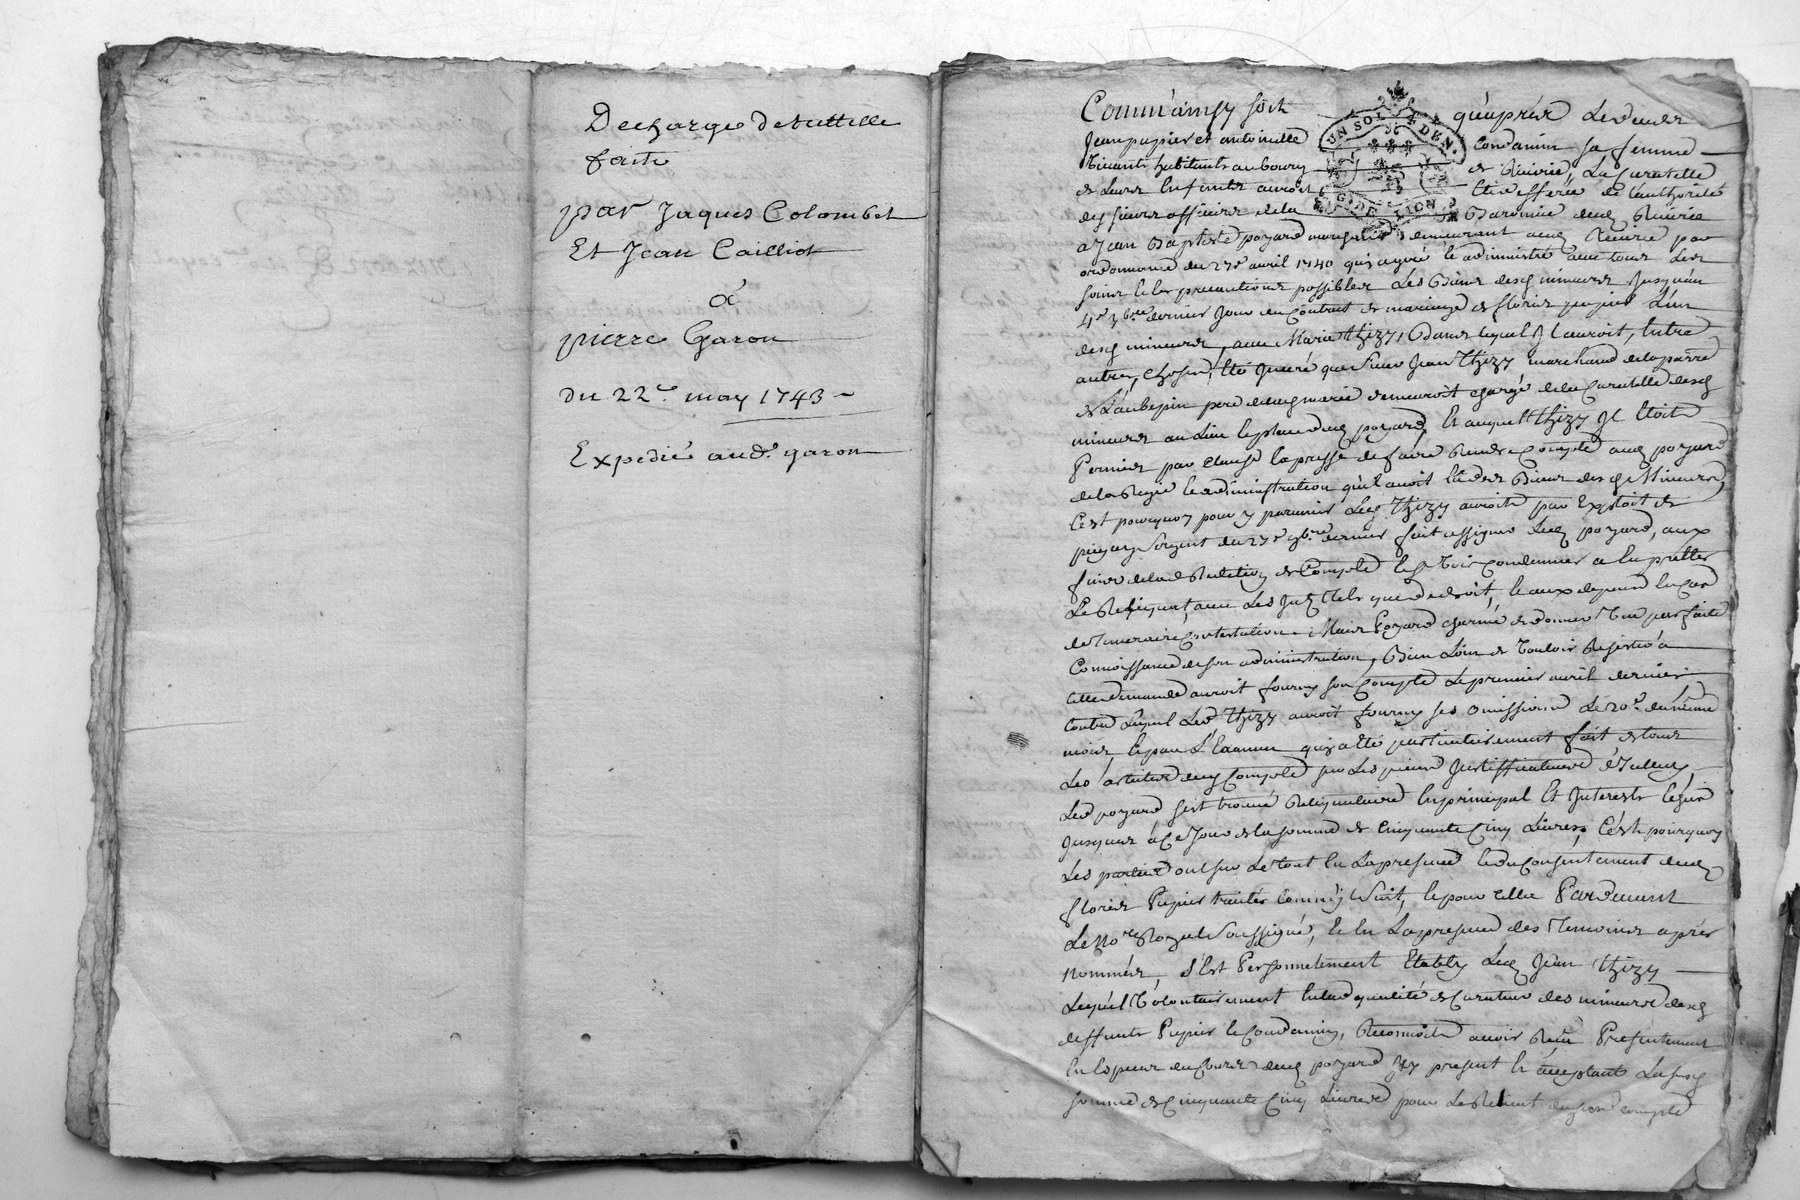 Decharge de tuttelle
faite
par Jaques Colombet
Et Jean Cailliot
à
pierre Garon
du 22e may 1743
Expedié aud. garon
Comm'ainsy soit qu'après le deces
UN SOL DEN.
G. DE LION
Jean pupier et antoinette Condamin sa femme
vivants habitants au bourg de Rivirie, La Curatelle
de Leurs Enfants auroit Esté defferée de l'authorité
des sieurs officiers de la Baronnie dudq Rivirie
a Jean Baptiste poyard marchand demeurant audq Rivirie par
ordonnance du 27e avril 1740 qui a geré et administré avec tous Les
soins et les precautions possibles Les Biens desq mineurs Jusqu'au
4e xbre dernier Jour du Contrat de mariage de florie pupier L'un
desq mineurs, avec Marie thizy, Dans lequel Il auroit, Entre
autres Choses, Eté que sieur Jean thizy marchand de la parre
de L'aubepin pere de ladq marie demeuroit chargé de la Curatelle desq
mineurs au Lieu et place dudq poyard, Et auquel thizy Il Etoit
Permis par Clause Expresse de faire Rendre Compte audq poyard
de la Regie et administration qu'il avoit Eu des Biens desq Mineurs
C'est pourquoy pour y parvenir Ledq thizy auroit par Exploit de
Sergent du 27e 9bre dernier fait assigner Ledq poyard, aux
fins de lad Redition de Compte et se voir Condamner a En prester
Le Reliquat, avec Les Interests que de droit, et aux depens En Cas
de temeraire Contestation. Mais Poyard charmé de donner Une parfaite
Connoissance de son administration, Bien Loin de vouloir Resister a
cette demande auroit fourny son Compte Le premier avril dernier
Contre Lequel Led thizy auroit fourny ses omissions Le 20e du même
mois, Et par L'Examen qui a eté particulierement fait de tous
Les articles dudq Compte sur Les pieces Justifficatives d'Iceluy,
Led poyard s'est trouvé Reliquataire En principal Et Interests
Jusques à Ce Jour de la somme de Cinquante Cinq Livres, C'est pourquoy
Les parties ont sur Le tout En La presence et du Consentement dudq
florie Pupier traitté Comm'il suit, et pour cette Pardevant
Le Nore Royal soussigné, et En La presence des Temoins après
Nommés, s'Est Personnelement Etably Ledq Jean thizy
Lequel Volontairement En lad qualité de Curateur des mineurs desq
deffunts Pupier et Condamin, Reconnoit avoir Reçu Presentement
En Especes du Cours dudq poyard Icy present et acceptant La susq
somme de Cinquante Cinq Livres pour Le Reliquat dudq compte